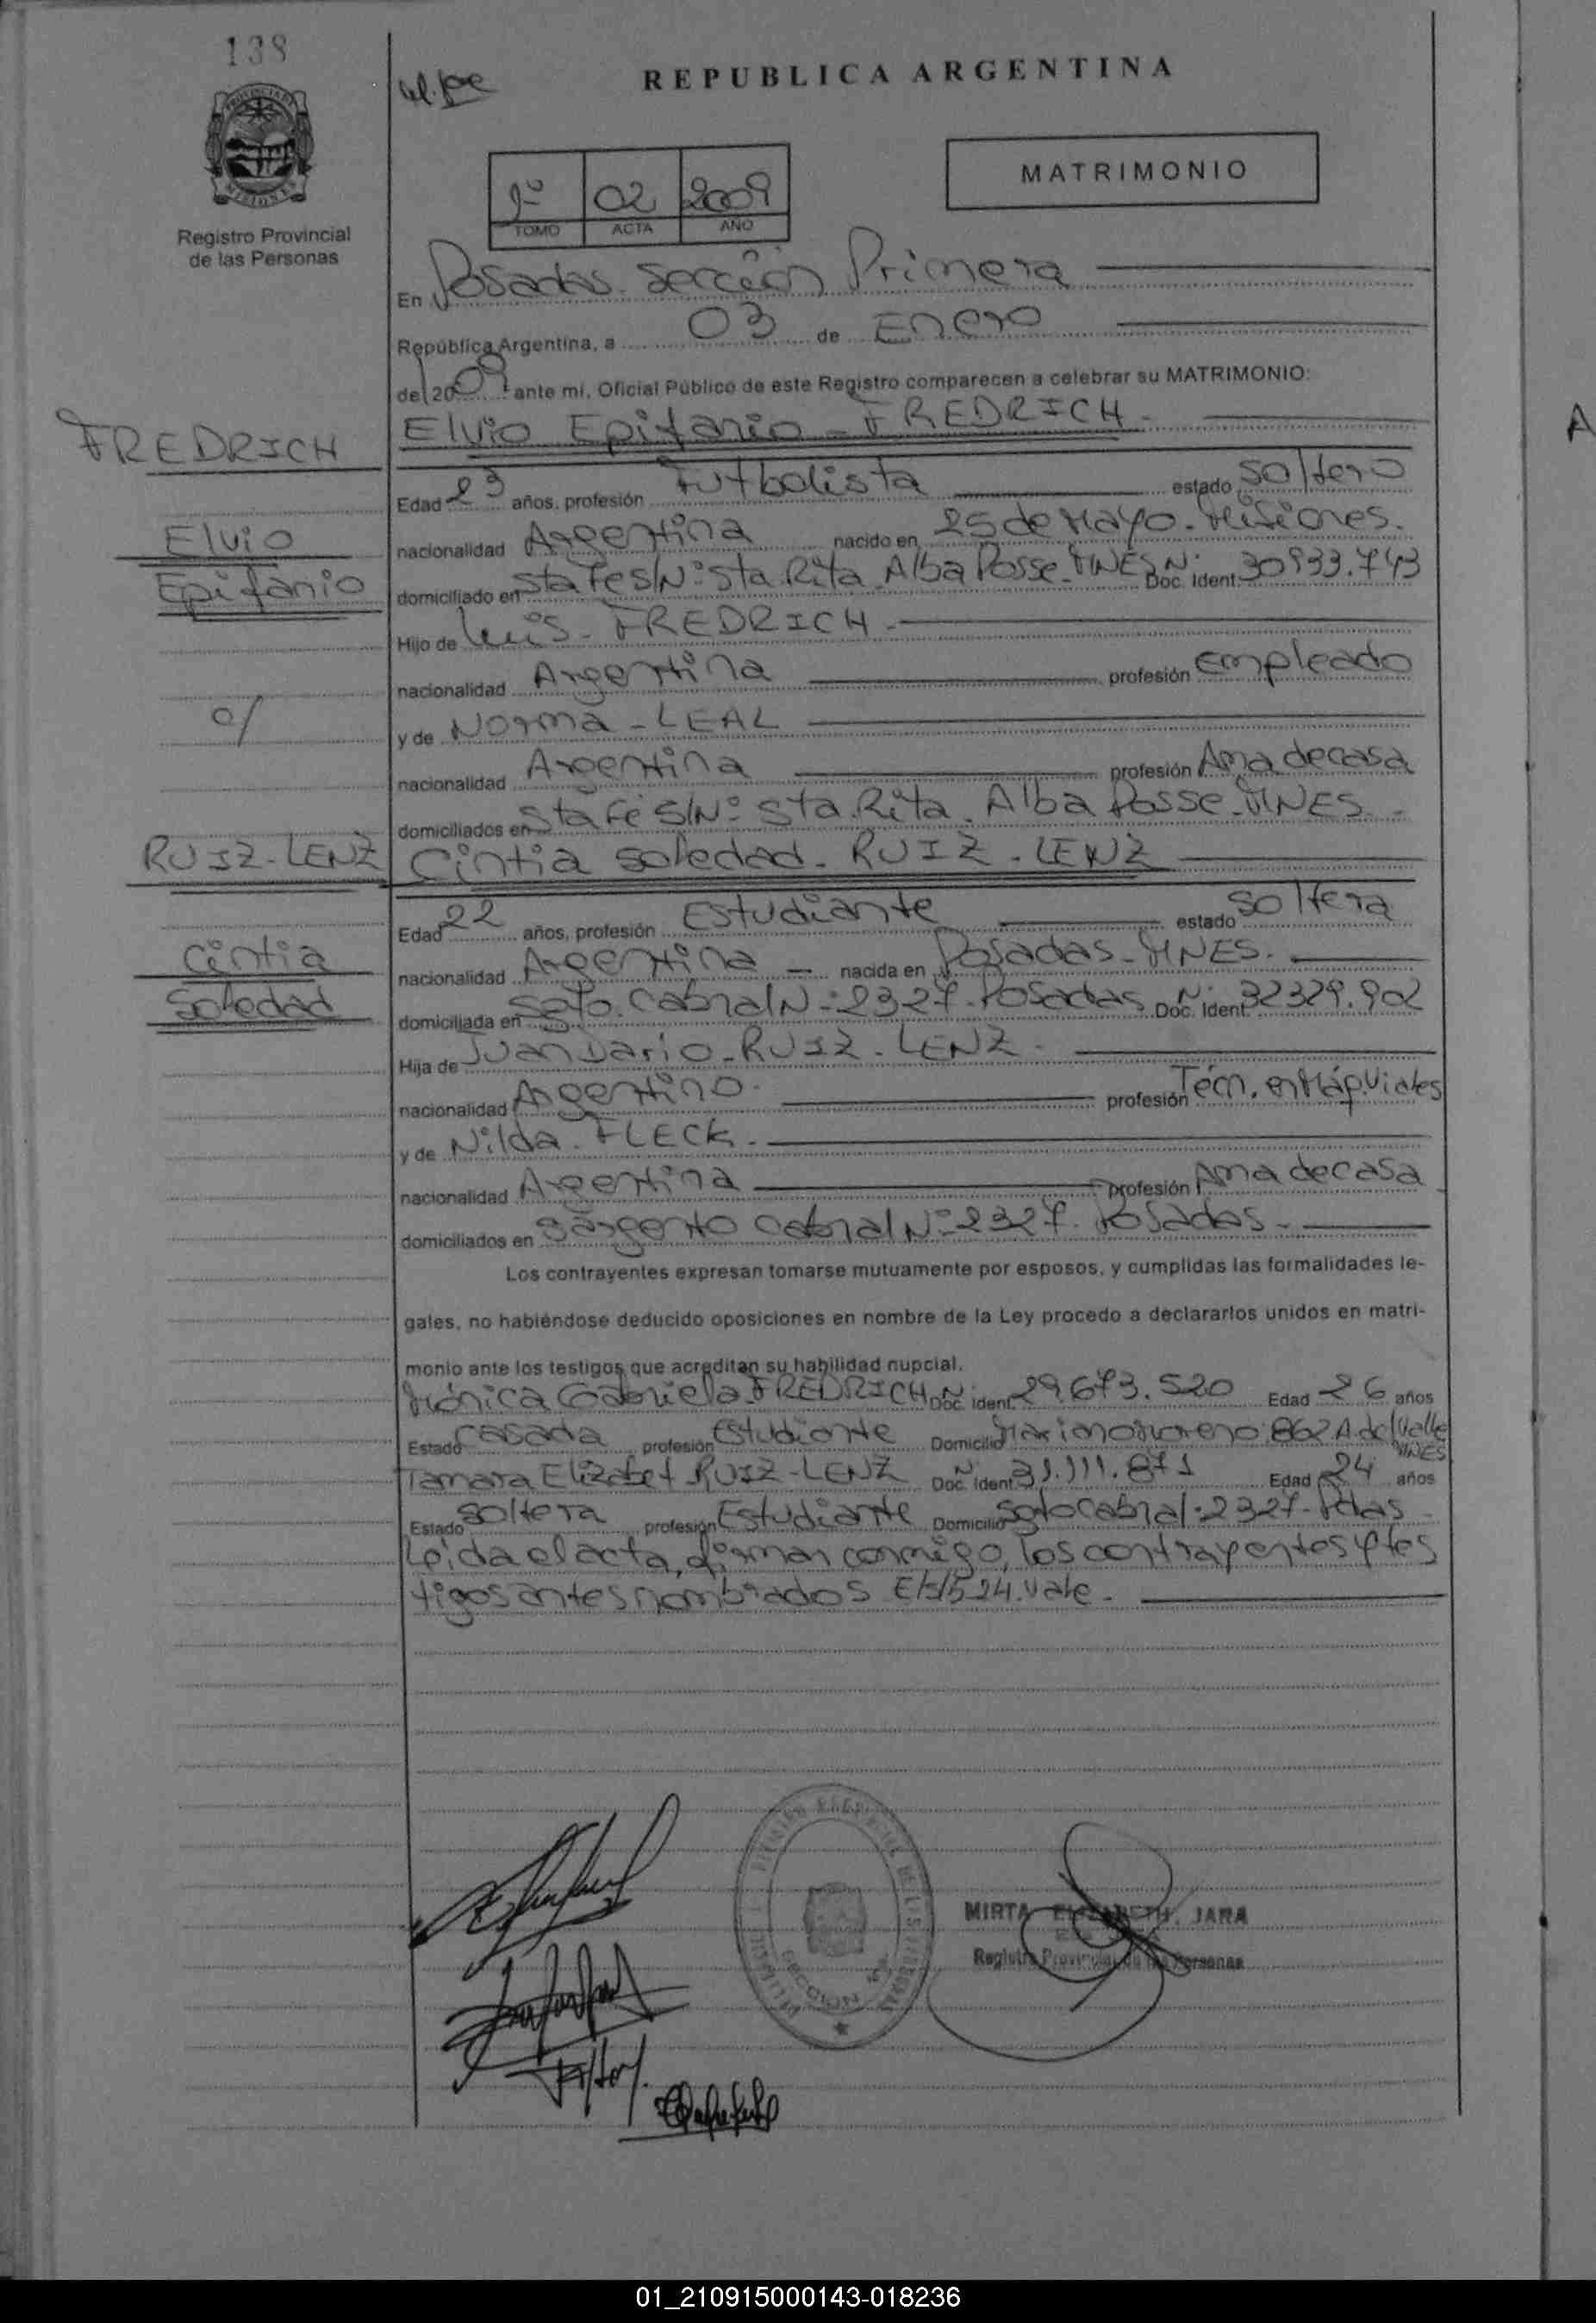 138
REPUBLICA ARGENTINA
MATRIMONIO
1º 02 2009
TOMO ACTA AÑO
Registro Provincial
de las Personas
En Posadas. Sección Primera
República Argentina, a 03 de Enero
del 2009 ante mí, Oficial Público de este Registro comparecen a celebrar su MATRIMONIO:
FREDRICH
Elvio Epifanio - FREDRICH -
Edad 23 años, profesión Futbolista estado Soltero
Elvio
nacionalidad Argentina nacido en 25 de Mayo. Misiones.
Epifanio
domiciliado en Sta Fe S/Nº Sta. Rita. Alba Posse. MNES Doc. Ident. Nº 30933.743
Hijo de Luis - FREDRICH -
nacionalidad Argentina profesión Empleado
c/
y de Norma - LEAL
nacionalidad Argentina profesión Ama de casa
domiciliados en Sta Fé S/Nº Sta. Rita. Alba Posse. MNES. -
RUIZ-LENZ
Cintia Soledad - RUIZ - LENZ
Edad 22 años, profesión Estudiante estado Soltera
Cintia
nacionalidad Argentina - nacida en Posadas - MNES.
Soledad
domiciliada en Sgto. Cabral Nº 2327. Posadas Doc. Ident. Nº 32329.902
Hija de Juan Dario - RUIZ - LENZ -
nacionalidad Argentino. profesión Técn. en Máq. Viales
y de Nilda - FLECK -
nacionalidad Argentina profesión Ama de casa
domiciliados en Sargento Cabral Nº 2327. Posadas -
Los contrayentes expresan tomarse mutuamente por esposos, y cumplidas las formalidades le-
gales, no habiéndose deducido oposiciones en nombre de la Ley procedo a declararlos unidos en matri-
monio ante los testigos que acreditan su habilidad nupcial.
Mónica Gabriela FREDRICH Doc. Ident. Nº 29.673.520 Edad 26 años
Estado Casada profesión Estudiante Domicilio Mariano Moreno 862 A. del Valle
MNES
Tamara Elizabet RUIZ - LENZ Doc. Ident. Nº 31.111.871 Edad 24 años
Estado Soltera profesión Estudiante Domicilio Sgto Cabral 2327 - Pdas -
Leída el acta, firman conmigo, los contrayentes y tes
tigos antes nombrados E/s/524. Vale. -
MIRTA ELIZABETH JARA
Registro Provincial de las Personas
01_210915000143-018236